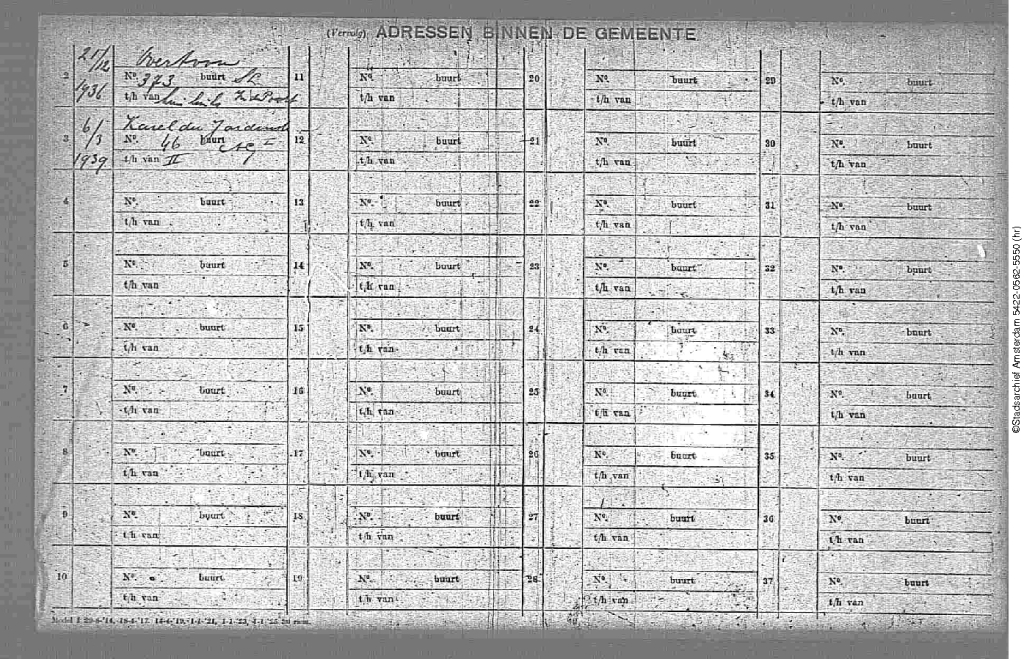 (Vervolg) ADRESSEN BINNEN DE GEMEENTE
2 21/12 1936 Overtoom
No. 373 buurt
t/h van
3 6/3 1939 Karel du Jardinstr
No. 46 buurt
t/h van II
4 No. buurt
t/h van
5 No. buurt
t/h van
6 No. buurt
t/h van
7 No. buurt
t/h van
8 No. buurt
t/h van
9 No. buurt
t/h van
10 No. buurt
t/h van
11 No. buurt
t/h van
12 No. buurt
t/h van
13 No. buurt
t/h van
14 No. buurt
t/h van
15 No. buurt
t/h van
16 No. buurt
t/h van
17 No. buurt
t/h van
18 No. buurt
t/h van
19 No. buurt
t/h van
20 No. buurt
t/h van
21 No. buurt
t/h van
22 No. buurt
t/h van
23 No. buurt
t/h van
24 No. buurt
t/h van
25 No. buurt
t/h van
26 No. buurt
t/h van
27 No. buurt
t/h van
28 No. buurt
t/h van
29 No. buurt
t/h van
30 No. buurt
t/h van
31 No. buurt
t/h van
32 No. buurt
t/h van
33 No. buurt
t/h van
34 No. buurt
t/h van
35 No. buurt
t/h van
36 No. buurt
t/h van
37 No. buurt
t/h van
©Stadsarchief Amsterdam 5422-0562-5550 (hr)